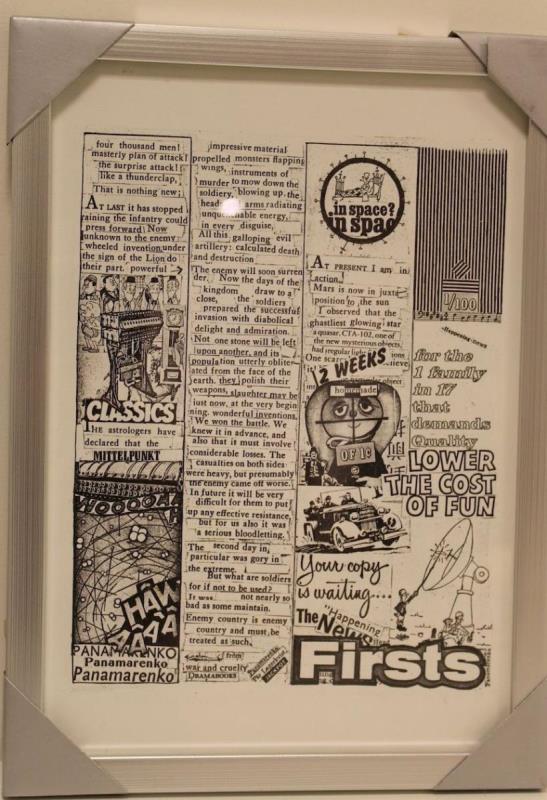 four thousand men!
masterly plan of attack!
the surprise attack!
like a thunderclap,
That is nothing new;
AT LAST it has stopped
raining the infantry could
press forward! Now
unknown to the enemy
wheeled invention under
the sign of the Lion do
their part. powerful
CLASSICS
THE astrologers have
declared that the
MITTELPUNKT
WOOOOAH
HÂW
PANAMARENKO
Panamarenko
Panamarenko
impressive material
propelled monsters flapping
wings, instruments of
murder to mow down the
soldiery, blowing up the
heads arms radiating
unquenchable energy,
in every disguise,
All this galloping evil
artillery: calculated death
and destruction
The enemy will soon surren
der. Now the days of the
kingdom draw to a
close, the soldiers
prepared the successful
invasion with diabolical
delight and admiration.
Not one stone will be left
upon another, and its
population utterly obliter-
ated from the face of the
earth. they polish their
weapons, slaughter may be
just now, at the very begin
ning. wonderful inventions,
We won the battle. We
knew it in advance, and
also that it must involve
considerable losses. The
casualties on both sides
were heavy, but presumably
the enemy came off worse.
In future it will be very
difficult for them to put
up any effective resistance,
but for us also it was
a serious bloodletting.
The second day in
particular was gory in
the extreme.
But what are soldiers
for if not to be used?
It was not nearly so
bad as some maintain.
Enemy country is enemy
country and must be
treated as such.
from
war and cruelty
DRAMABOOKS
in space?
in spac
AT PRESENT I am in
action!
Mars is now in juxta
position to the sun
I observed that the
ghastliest glowing star
a quasar, CTA-102, one of
the new mysterious objects,
had irregular
One scar
object
2 WEEKS
homemade
OF 1c
Your copy
is waiting....
The "Happening
News
Firsts
1/100
Happening-news
for the
1 family
in 17
that
demands
Quality
LOWER
THE COST
OF FUN